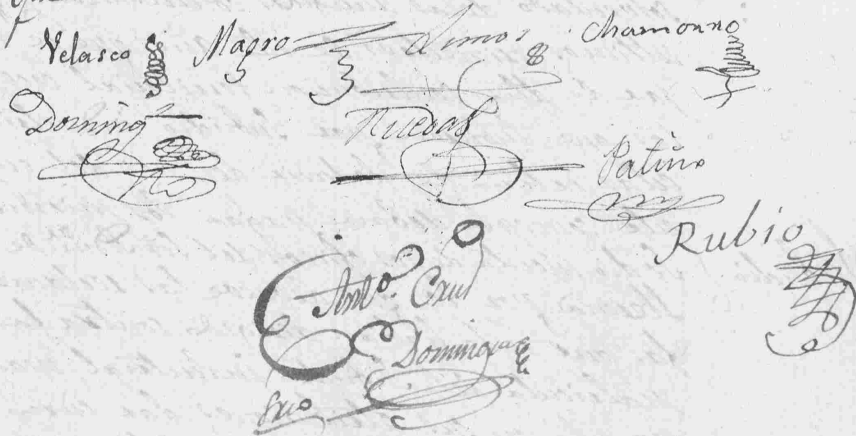 Velasco Magro Limos Chamorro
Doming^z Ruedas
Patiño
Rubio
Ant.º Cruz
Dominguez
Srio